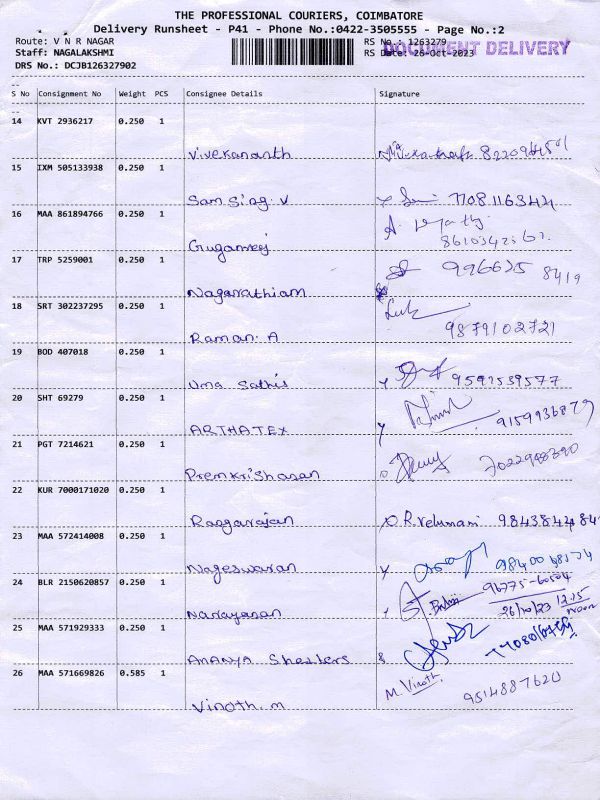 THE PROFESSIONAL COURIERS, COIMBATORE
Delivery Runsheet - P41 - Phone No.:0422-3505555 - Page No.:2
Route: V N R NAGAR RS No.: 1263279
DOCUMENT DELIVERY
Staff: NAGALAKSHMI RS Date: 26-Oct-2023
DRS No.: DCJB126327902
S No Consignment No Weight PCS Consignee Details Signature
14 KVT 2936217 0.250 1
Vivekananth
15 IXM 505133938 0.250 1
Sam Sing. V 7708116344
16 MAA 861894766 0.250 1
Gugamraj
17 TRP 5259001 0.250 1
996625 8419
Nagarathiam
18 SRT 302237295 0.250 1
Raman. A 9879102721
19 BOD 407018 0.250 1
Uma Sathis 9591539577
20 SHT 69279 0.250 1
ARTHATEX 9159936879
21 PGT 7214621 0.250 1
Premkrishasan 7022998390
22 KUR 7000171020 0.250 1
Raagarajan R. Velumani 98438424 84
23 MAA 572414008 0.250 1
Nageswaran
24 BLR 2150620857 0.250 1
96775-60504
Narayanan 26/10/23 12.15 noon
25 MAA 571929333 0.250 1
ANANYA Shelters
26 MAA 571669826 0.585 1
M. Vinoth. 9514887620
Vinoth. m